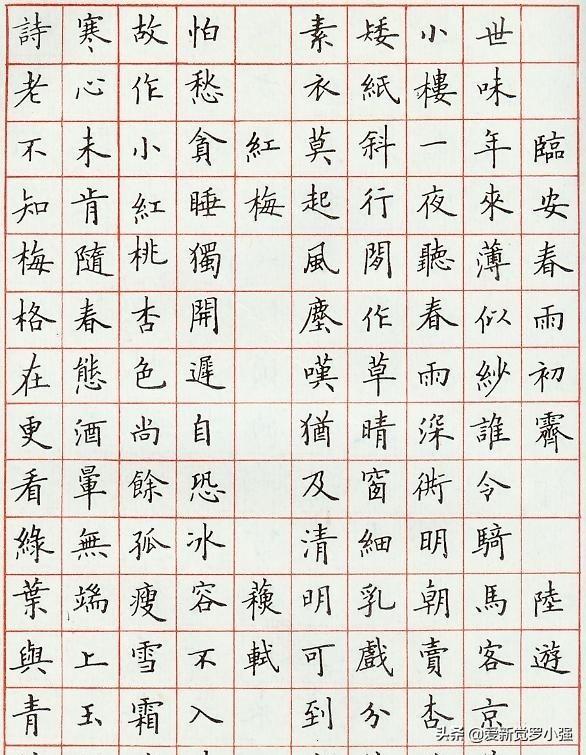 臨安春雨初霽 陸遊
世味年來薄似紗誰令騎馬客京
小樓一夜聽春雨深衖明朝賣杏
矮紙斜行閒作草晴窗細乳戲分
素衣莫起風塵嘆猶及清明可到
紅梅 蘓軾
怕愁貪睡獨開遲自恐冰容不入
故作小紅桃杏色尚餘孤瘦雪霜
寒心未肯隨春態酒暈無端上玉
詩老不知梅格在更看綠葉與青
头条 @爱新觉罗小强